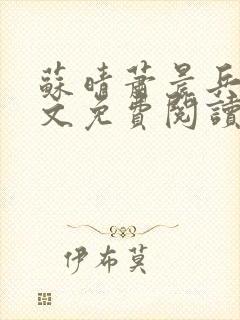 蘇晴蕭景兵
文免費閱讀
伊布莫